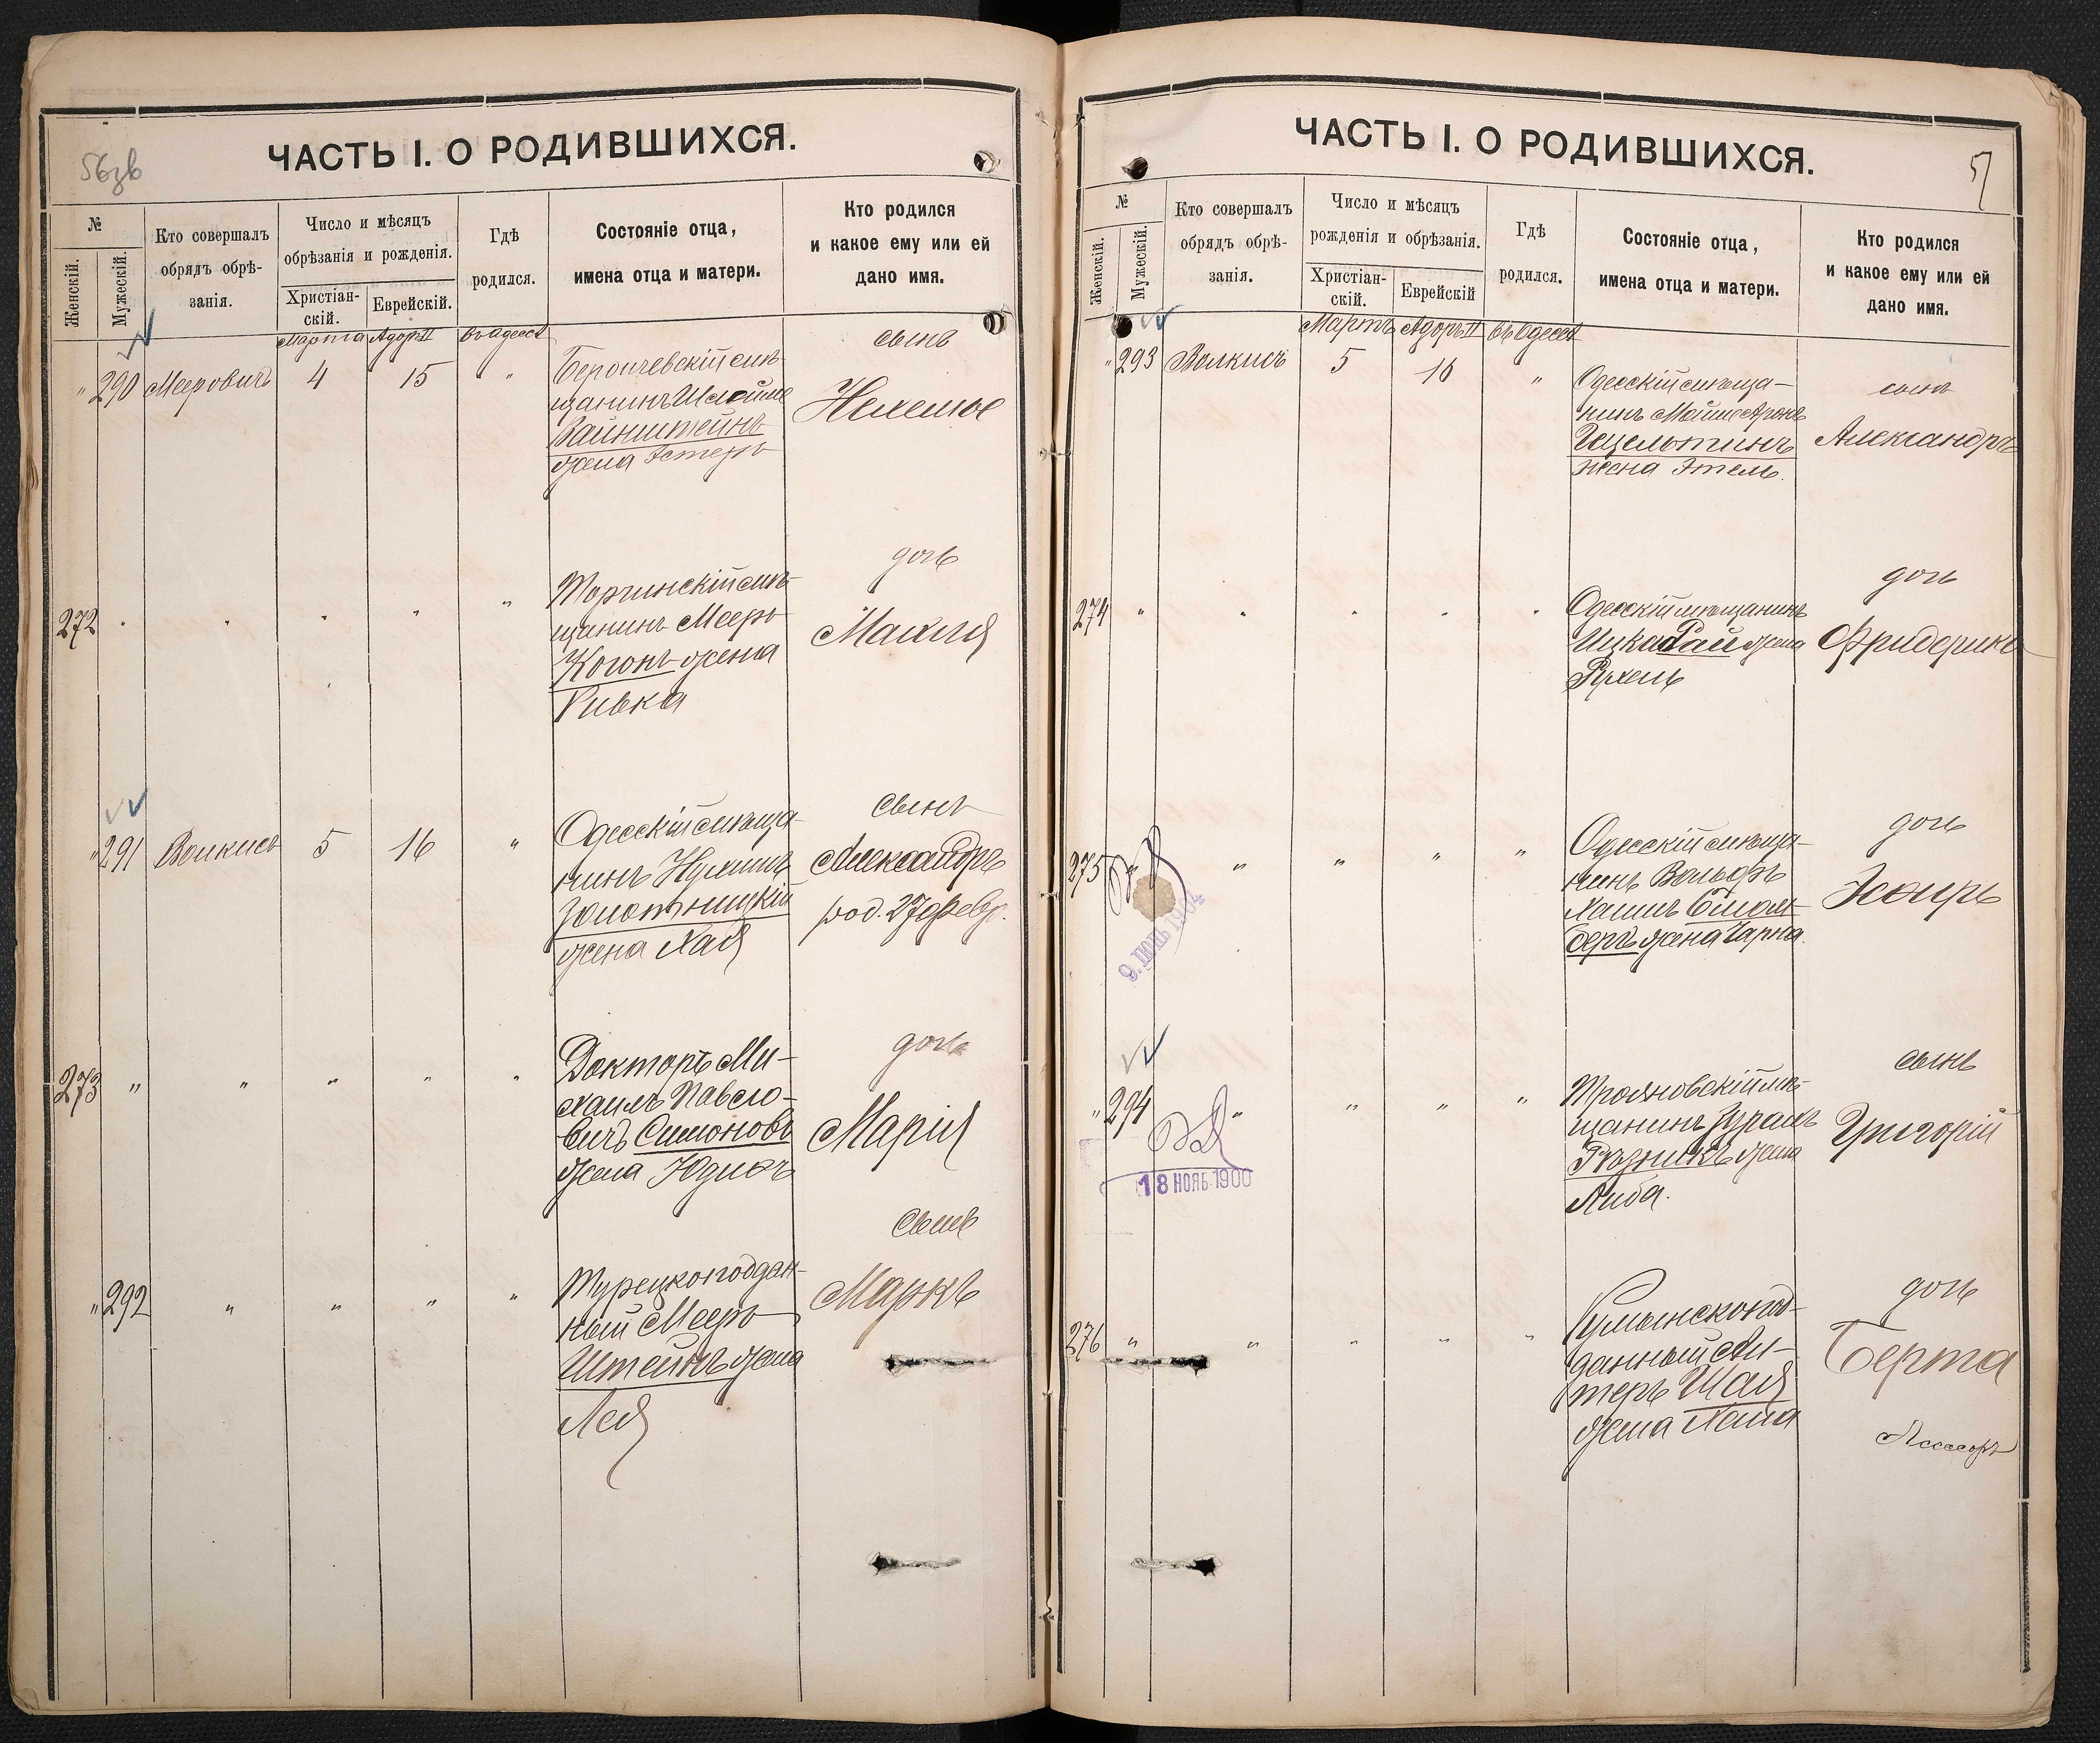 56 зв
ЧАСТЬ I. О РОДИВШИХСЯ.
№
Женскій.
Мужескій.
Кто совершалъ
обрядъ обрѣ-
занія.
Число и мѣсяцъ
обрѣзанія и рожденія.
Христіан-
скій.
Еврейскій.
Гдѣ
родился.
Состояніе отца,
имена отца и матери.
Кто родился
и какое ему или ей
дано имя.
Марта Адоръ II въ Одессѣ
" 290 Мееровичъ 4 15 "
Бердичевскій мѣ-
щанинъ Шлойме
Вайнштейнъ
жена Эстеръ
сынъ
Нехемье
272 " " " " "
мѣ-
щанинъ Мееръ
Когонъ жена
Ривка
дочь
" 291 Волкисъ 5 16 "
Одесскій мѣща-
нинъ Нухимъ
Золотницкій
жена Хая
сынъ
Александръ
род. 27 февр.
273 " " " " "
Докторъ Ми-
хаилъ Павло-
вичъ Симоновъ
жена Юдиѳь
дочь
Марія
" 292 " " " "
Турецкоподдан-
ный Мееръ
Штейнъ жена
Лея
сынъ
Маркъ
57
ЧАСТЬ I. О РОДИВШИХСЯ.
№
Женскій.
Мужескій.
Кто совершалъ
обрядъ обрѣ-
занія.
Число и мѣсяцъ
рожденія и обрѣзанія.
Христіан-
скій.
Еврейскій
Гдѣ
родился.
Состояніе отца,
имена отца и матери.
Кто родился
и какое ему или ей
дано имя.
Мартъ Адоръ II въ Одессѣ
" 293 Волкисъ 5 16 "
Одесскій мѣща-
нинъ Мойше Аронъ
жена Этель.
сынъ
Александръ
274 " " " " "
Одесскій мѣщанинъ
Ицка жена
Рухель
дочь
Фридерика
275 " " " "
9. ІЮНЬ 1904
Одесскій мѣща-
нинъ Вольфъ
Хаимъ
бергъ жена Чарна.
дочь
Эсѳирь
" 294 " " " "
18 НОЯБ. 1900
Трояновскій мѣ-
щанинъ
Рѣзникъ жена
Либа.
сынъ
Григорій
276 " " " " "
Румынскопод-
данный
жена Хана
дочь
Берта